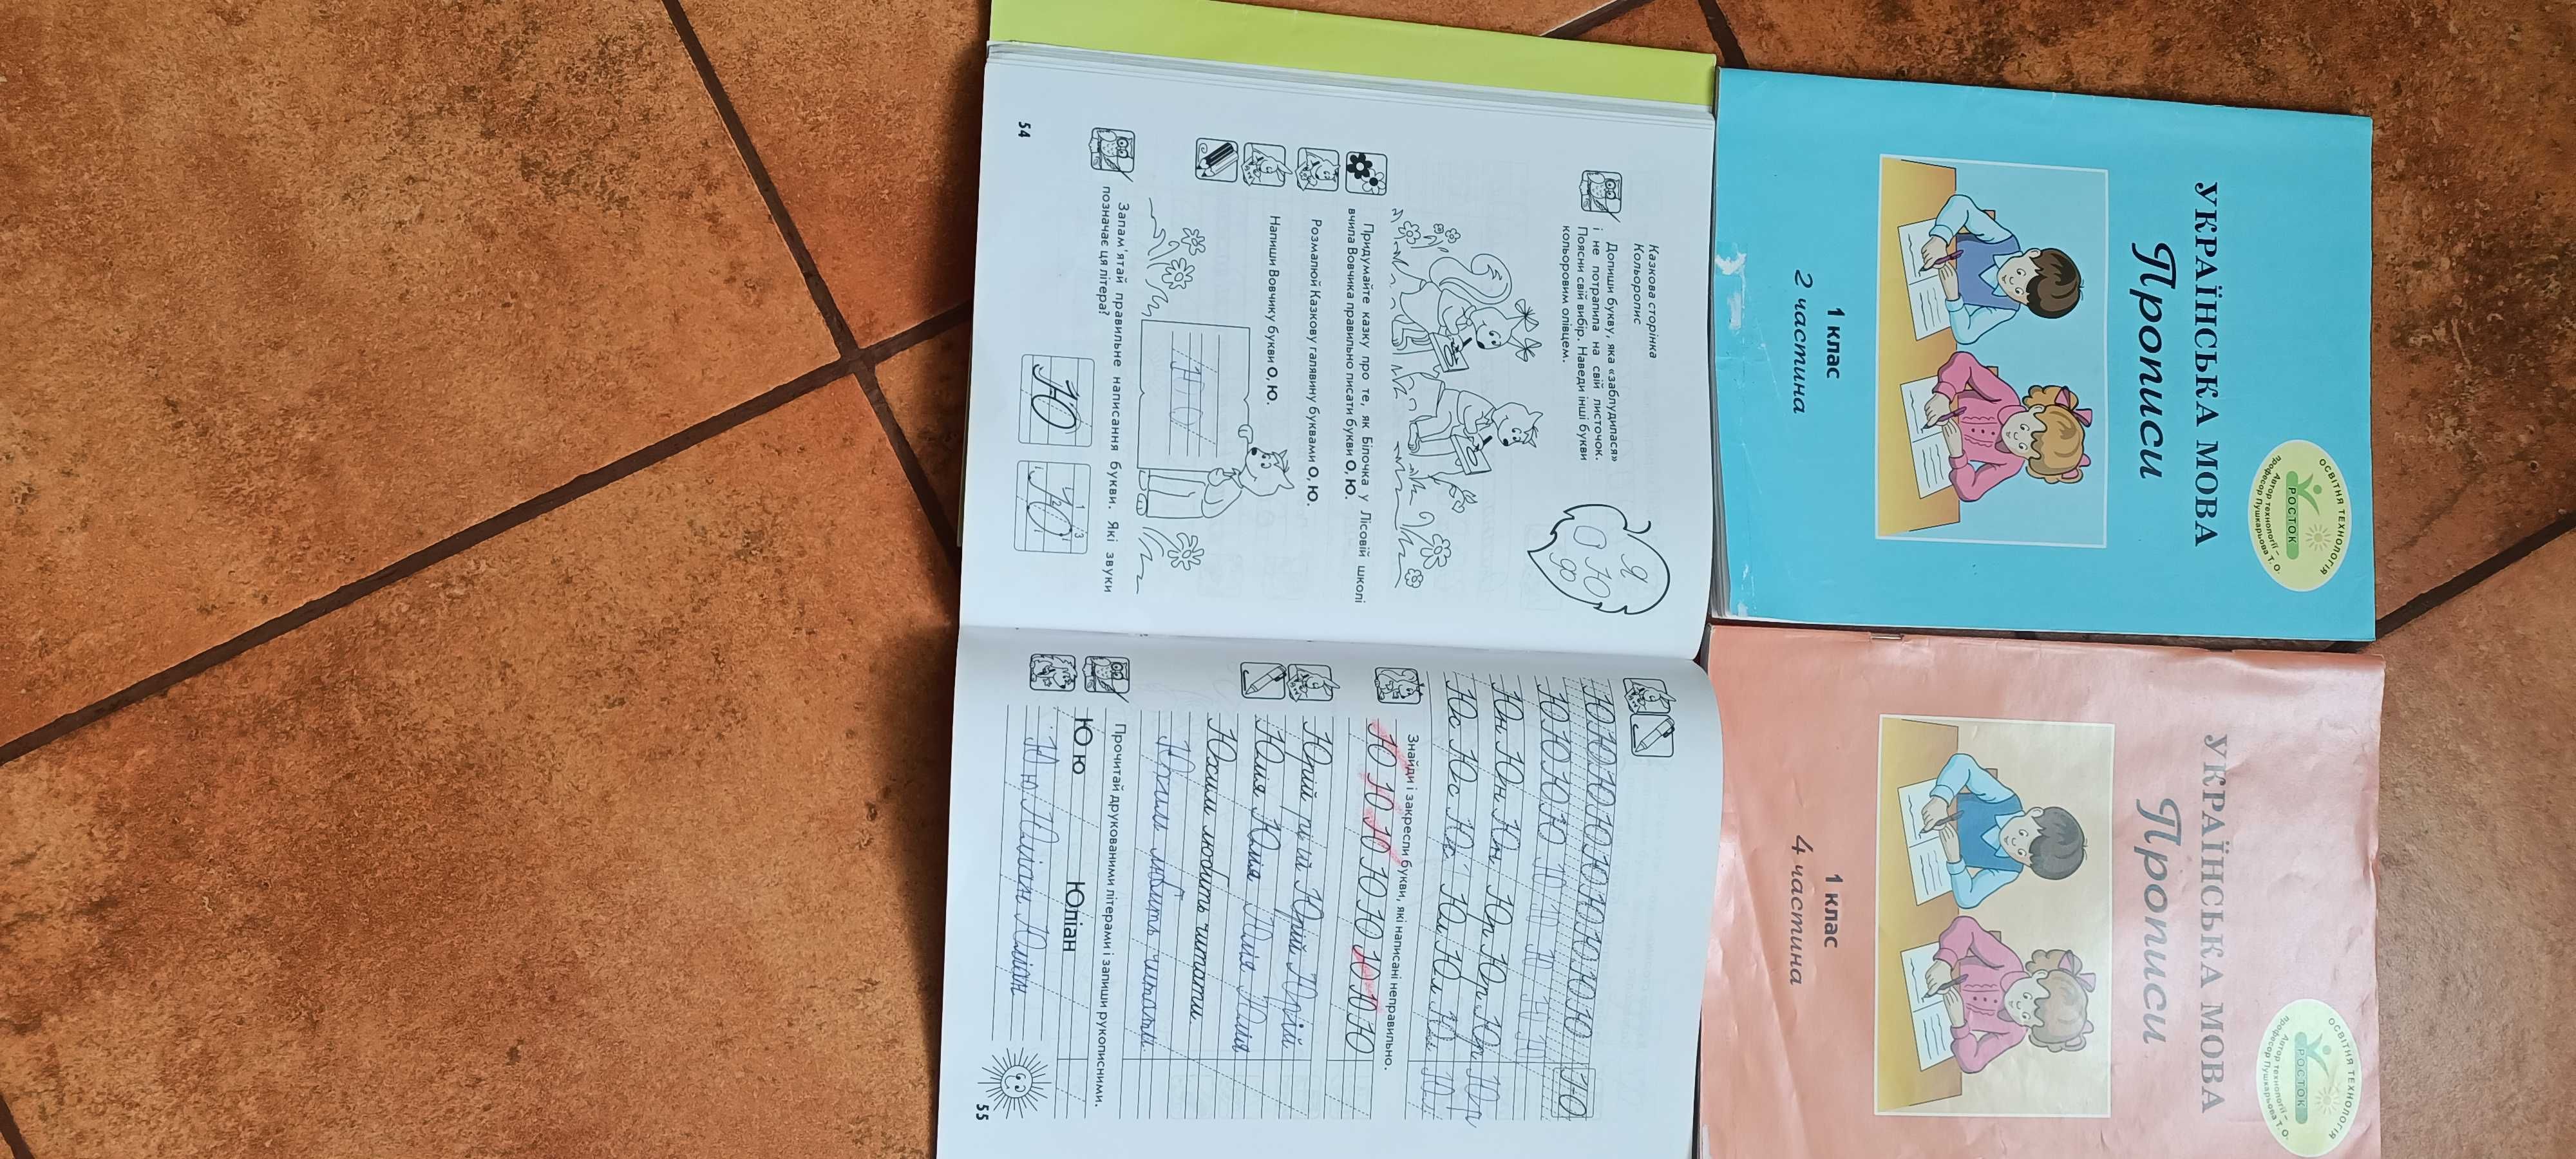 УКРАЇНСЬКА МОВА
Прописи
1 клас
2 частина
ОСВІТНЯ ТЕХНОЛОГІЯ
РОСТОК
Автор технології –
професор Пушкарьова Т. О.
УКРАЇНСЬКА МОВА
Прописи
1 клас
4 частина
ОСВІТНЯ ТЕХНОЛОГІЯ
РОСТОК
Автор технології –
професор Пушкарьова Т. О.
Казкова сторінка
Кольоропис
Допиши букву, яка «заблудилася»
і не потрапила на свій листочок.
Поясни свій вибір. Наведи інші букви
кольоровим олівцем.
Я
О Ю
Ф
Придумайте казку про те, як Білочка у Лісовій школі
вчила Вовчика правильно писати букви О, Ю.
Розмалюй Казкову галявину буквами О, Ю.
Напиши Вовчику букви О, Ю.
Ю О
Запам'ятай правильне написання букви. Які звуки
позначає ця літера?
Ю Ю
54
Ю Ю Ю Ю Ю Ю Ю Ю Ю Ю Ю Ю
Ю Ю Ю Ю Ю Ю Ю Ю Ю
Юн Юн Юн Юр Юр Юр Юр
Юс Юс Юс Юл Юл Юл Юл
Знайди і закресли букви, які написані неправильно.
Ю Ю Ю Ю Ю Ю Ю Ю
Юрій рій Юрій Юрій
Юлія Юлія Юлія Юлія
Юхим любить читати.
любить читати.
Прочитай друкованими літерами і запиши рукописними.
Ю ю Юліан
Ю ю Юліан Юліан
55